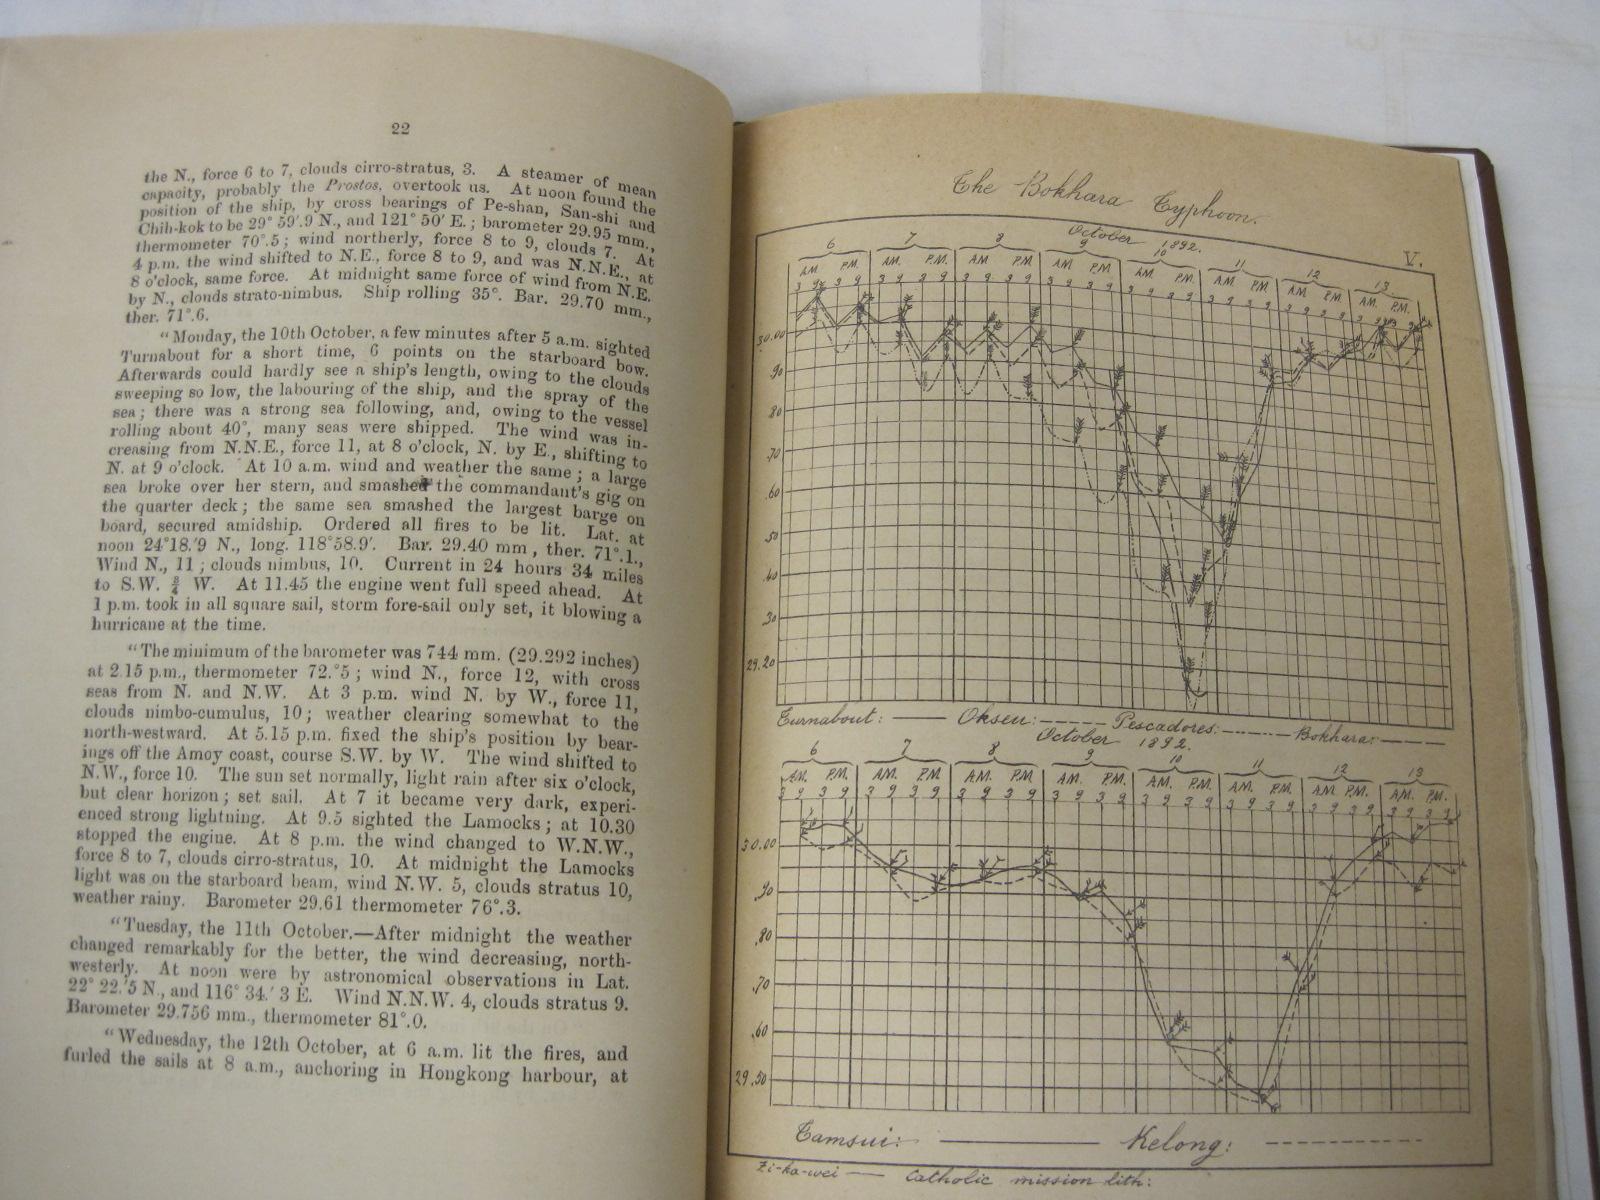 22
the N., force 6 to 7, clouds cirro-stratus, 3. A steamer of mean
capacity, probably the Prostos, overtook us. At noon found the
position of the ship, by cross bearings of Pe-shan, San-shi and
Chih-kok to be 29° 59'.9 N., and 121° 50' E.; barometer 29.95 mm.,
thermometer 70°.5; wind northerly, force 8 to 9, clouds 7. At
4 p.m. the wind shifted to N.E., force 8 to 9, and was N.N.E., at
8 o'clock, same force. At midnight same force of wind from N.E.
by N., clouds strato-nimbus. Ship rolling 35°. Bar. 29.70 mm.,
ther. 71°.6.
"Monday, the 10th October, a few minutes after 5 a.m. sighted
Turnabout for a short time, 6 points on the starboard bow.
Afterwards could hardly see a ship's length, owing to the clouds
sweeping so low, the labouring of the ship, and the spray of the
sea; there was a strong sea following, and, owing to the vessel
rolling about 40°, many seas were shipped. The wind was in-
creasing from N.N.E., force 11, at 8 o'clock, N. by E., shifting to
N. at 9 o'clock. At 10 a.m. wind and weather the same; a large
sea broke over her stern, and smashed the commandant's gig on
the quarter deck; the same sea smashed the largest barge on
board, secured amidship. Ordered all fires to be lit. Lat. at
noon 24°18.'9 N., long. 118°58.9'. Bar. 29.40 mm, ther. 71°.1.,
Wind N., 11; clouds nimbus, 10. Current in 24 hours 34 miles
to S.W. ¾ W. At 11.45 the engine went full speed ahead. At
1 p.m. took in all square sail, storm fore-sail only set, it blowing a
hurricane at the time.
"The minimum of the barometer was 744 mm. (29.292 inches)
at 2.15 p.m., thermometer 72.°5; wind N., force 12, with cross
seas from N. and N.W. At 3 p.m. wind N. by W., force 11,
clouds nimbo-cumulus, 10; weather clearing somewhat to the
north-westward. At 5.15 p.m. fixed the ship's position by bear-
ings off the Amoy coast, course S.W. by W. The wind shifted to
N.W., force 10. The sun set normally, light rain after six o'clock,
but clear horizon; set sail. At 7 it became very dark, experi-
enced strong lightning. At 9.5 sighted the Lamocks; at 10.30
stopped the engine. At 8 p.m. the wind changed to W.N.W.,
force 8 to 7, clouds cirro-stratus, 10. At midnight the Lamocks
light was on the starboard beam, wind N.W. 5, clouds stratus 10,
weather rainy. Barometer 29.61 thermometer 76°.3.
"Tuesday, the 11th October.—After midnight the weather
changed remarkably for the better, the wind decreasing, north-
westerly. At noon were by astronomical observations in Lat.
22° 22.'5 N., and 116° 34.' 3 E. Wind N.N.W. 4, clouds stratus 9.
Barometer 29.756 mm., thermometer 81°.0.
"Wednesday, the 12th October, at 6 a.m. lit the fires, and
furled the sails at 8 a.m., anchoring in Hongkong harbour, at
The Bokhara Typhoon.
V.
October 1892.
6 7 8 9 10 11 12 13
A.M. P.M. A.M. P.M. A.M. P.M. A.M. P.M. A.M. P.M. A.M. P.M. A.M. P.M. A.M. P.M.
3 9 3 9 3 9 3 9 3 9 3 9 3 9 3 9 3 9 3 9 3 9 3 9 3 9 3 9 3 9 3 9
30.00
.90
.80
.70
.60
.50
.40
.30
29.20
Turnabout: Okseu: Pescadores: Bokhara:
October 1892.
6 7 8 9 10 11 12 13
A.M. P.M. A.M. P.M. A.M. P.M. A.M. P.M. A.M. P.M. A.M. P.M. A.M. P.M. A.M. P.M.
3 9 3 9 3 9 3 9 3 9 3 9 3 9 3 9 3 9 3 9 3 9 3 9 3 9 3 9 3 9 3 9
30.00
.90
.80
.70
.60
29.50
Tamsui: Kelong:
Zi-ka-wei — Catholic mission lith: